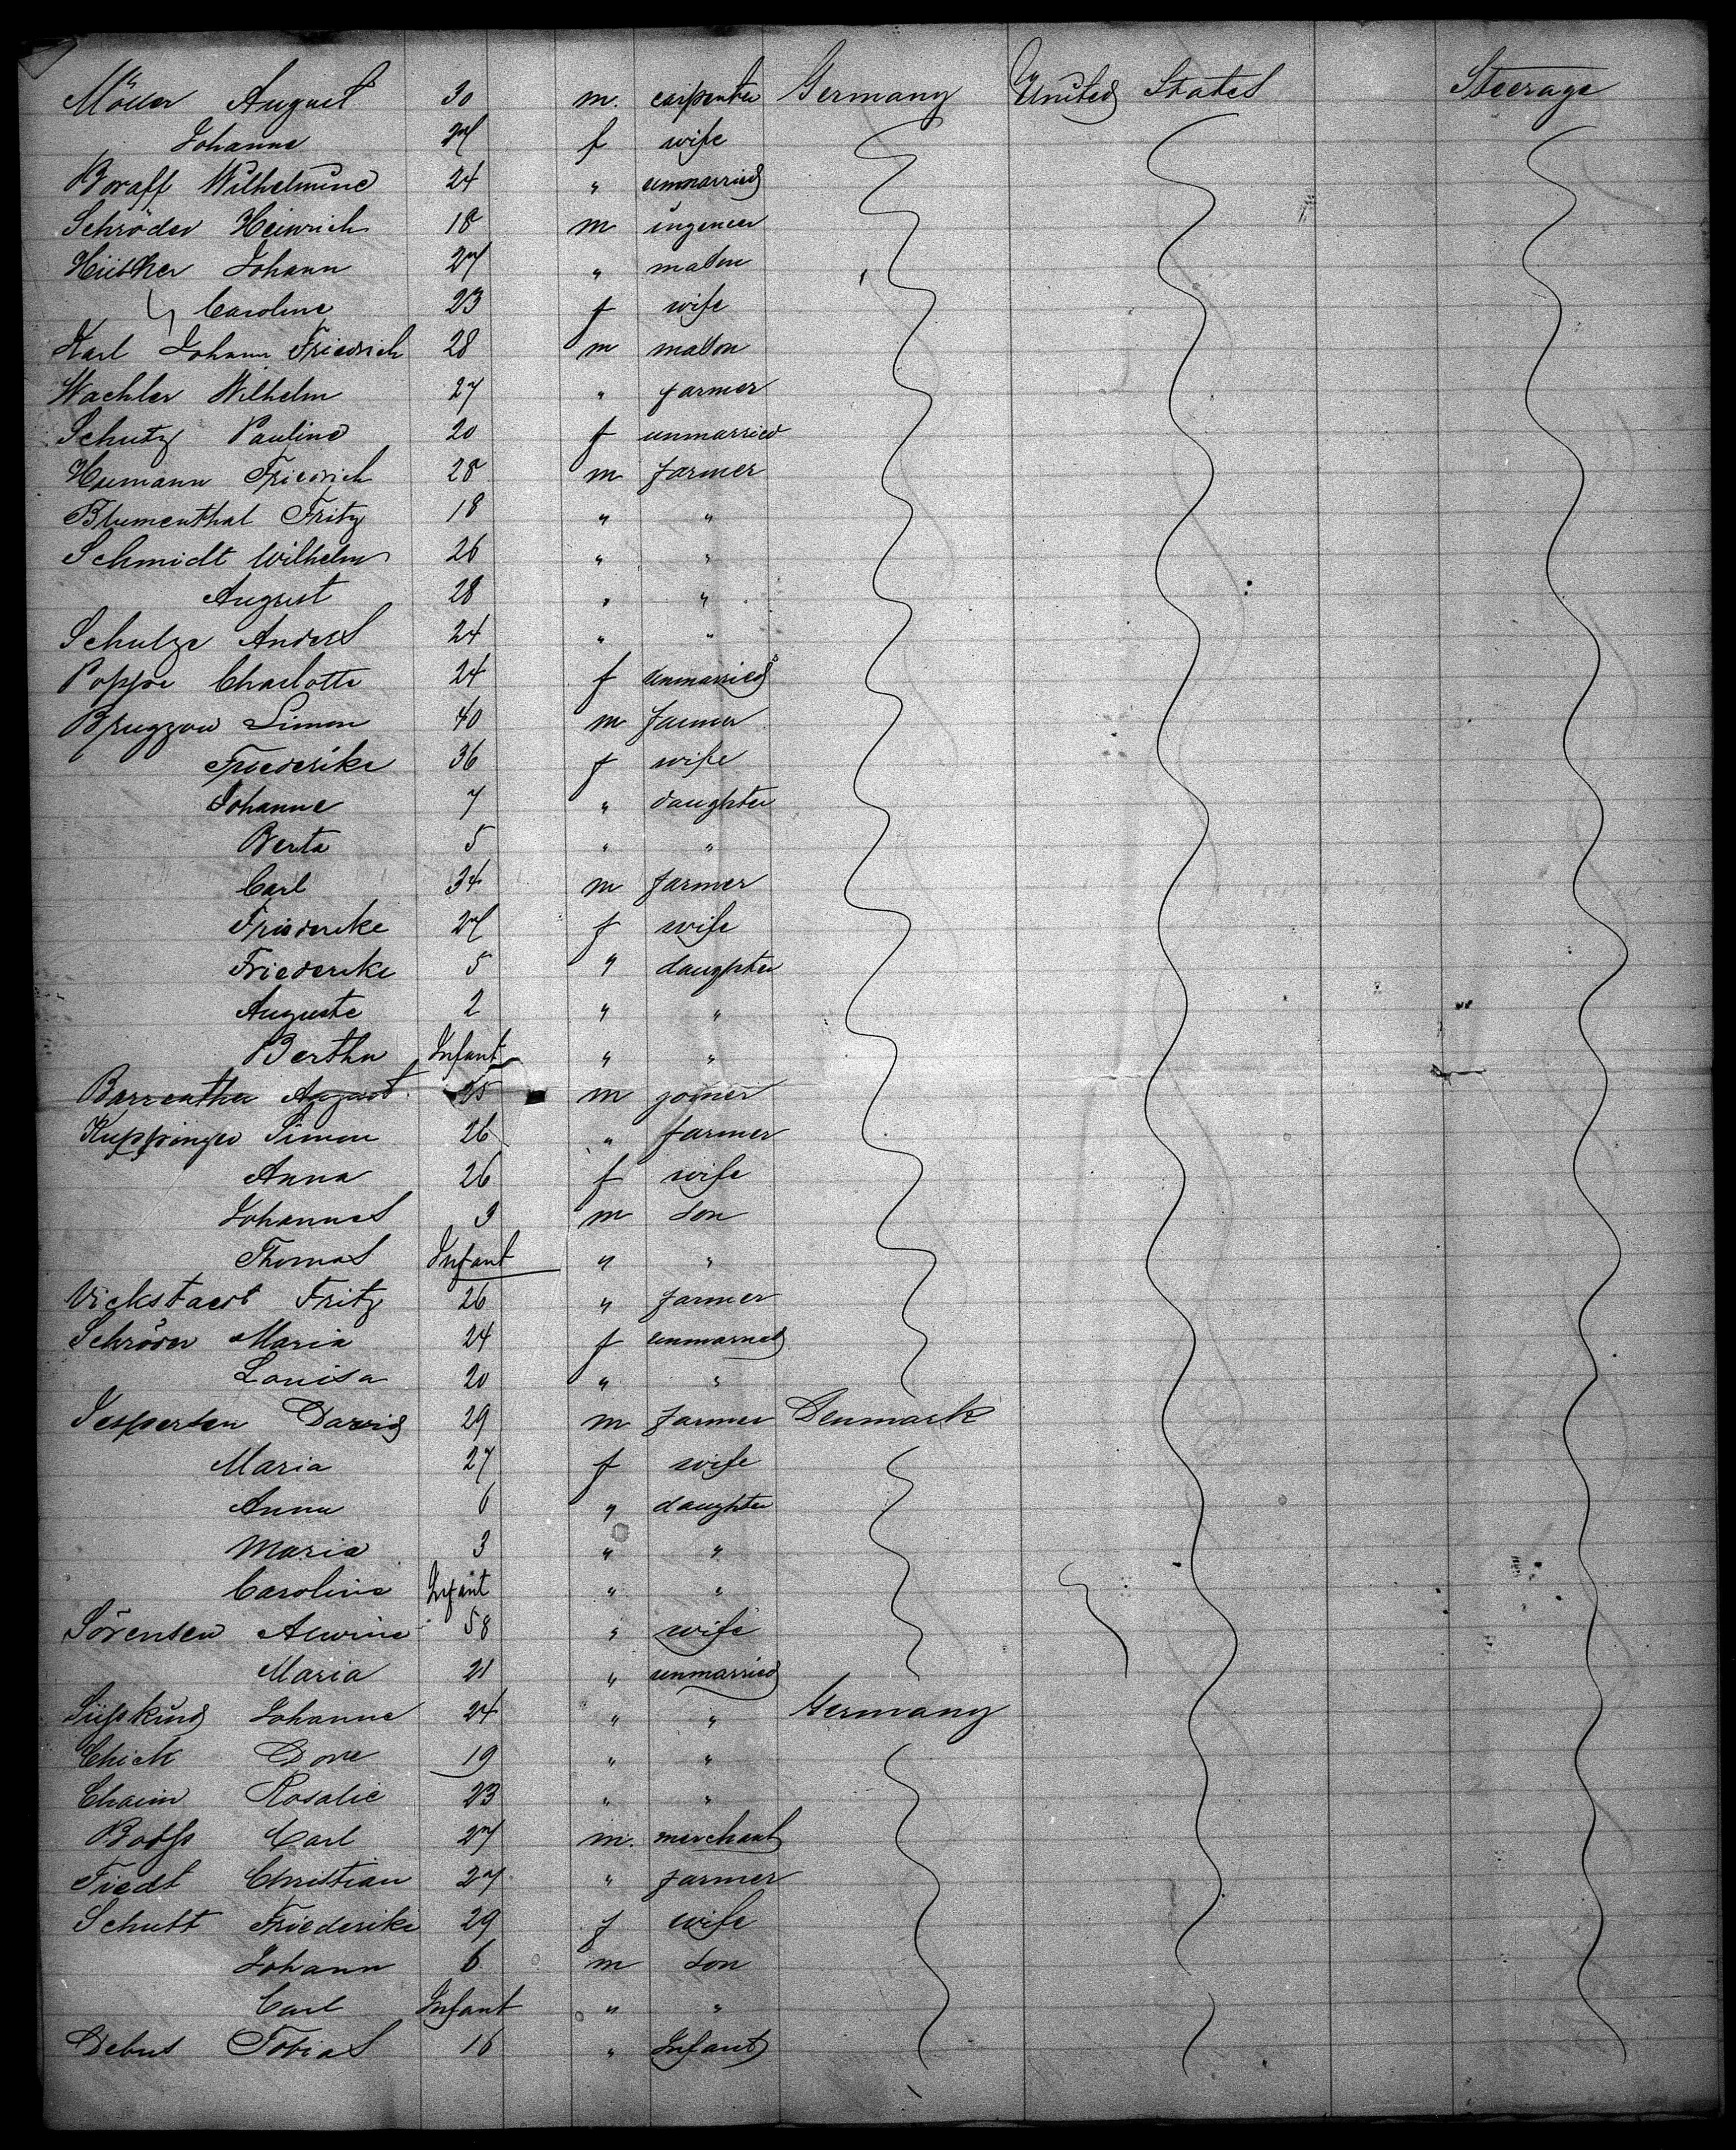 Möller August 30 m. carpenter Germany United States Steerage
Johanne 27 f wife
Boraff Wilhelmine 24 " unmarried
Schröder Heinrich 18 m ingeneer
Hütker Johann 27 " mason
Caroline 23 f wife
Karl Johann Friedrich 28 m mason
Wachler Wilhelm 27 " farmer
Schutz Pauline 20 f unmarried
Heumann Friedrich 28 m farmer
Blumenthal Fritz 18 " "
Schmidt Wilhelm 26 " "
August 28 " "
Schulze Anders 24 " "
Poppe Charlotte 24 f unmarried
Simon 40 m farmer
Friederike 36 f wife
Johanne 7 " daughter
Berta 5 " "
Carl 34 m farmer
Friederike 27 f wife
Friederike 5 " daughter
Auguste 2 " "
Bertha Infant " "
August 25 m joiner
Kuppinger Simon 26 " farmer
Anna 26 f wife
Johannes 3 m son
Thomas Infant " "
Vickstaedt Fritz 26 " farmer
Schröder Maria 24 f unmarried
Louisa 20 " "
Jespersen David 29 m farmer Denmark
Maria 27 f wife
Anna 6 " daughter
Maria 3 " "
Caroline Infant " "
Sörensen Alwine 58 " wife
Maria 21 " unmarried
Süßkind Johanne 24 " " Germany
Chick Dore 19 " "
Chaim Rosalie 23 " "
Carl 27 m. merchant
Tiedt Christian 27 " farmer
Schutt Friederike 29 f wife
Johann 6 m son
Carl Infant " "
Debus Tobias 16 " Infant